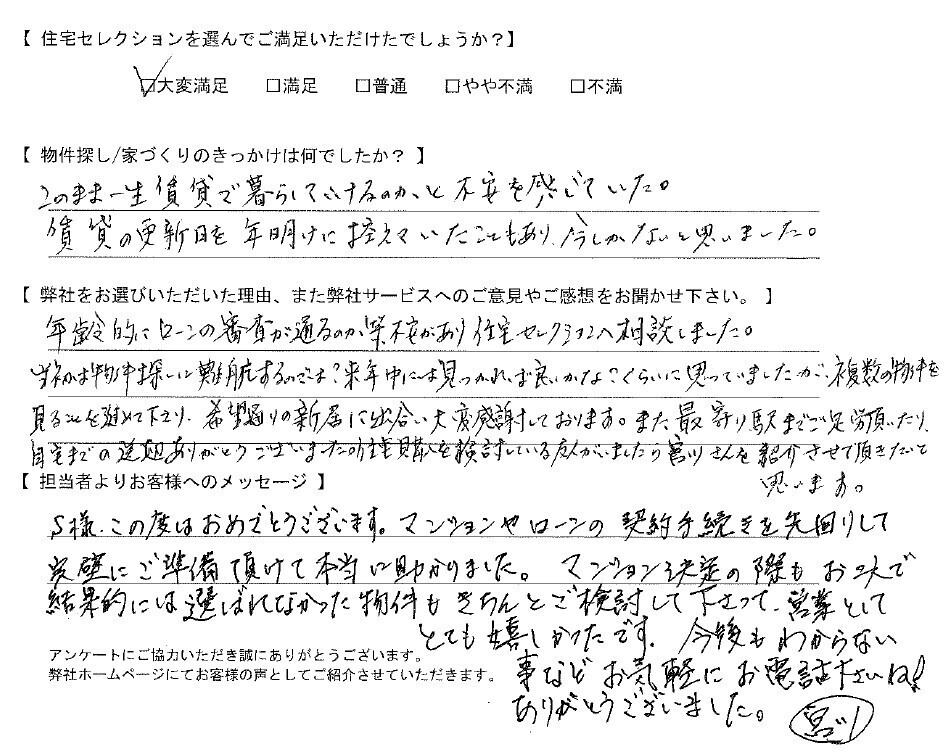 【 住宅セレクションを選んでご満足いただけたでしょうか？】
☑大変満足 □満足 □普通 □やや不満 □不満
【 物件探し/家づくりのきっかけは何でしたか？ 】
このまま一生賃貸で暮らしていけるのか、と不安を感じていた。
賃貸の更新日を年明けに控えていたこともあり、今しかないと思いました。
【 弊社をお選びいただいた理由、また弊社サービスへのご意見やご感想をお聞かせ下さい。 】
年齢的にローンの審査が通るのか不安があり住宅セレクションへ相談しました。
物件探しに難航するのでは？来年中には見つかれば良いかなくらいに思っていましたが、複数の物件を
見ることを進めて下さり、希望通りの新居に出会い大変感謝しております。また最寄り駅までご足労頂いたり、
自宅までの送迎ありがとうございました。住宅購入を検討している友人がいましたら宮川さんを紹介させて頂きたいと
思います。
【 担当者よりお客様へのメッセージ 】
S様、この度はおめでとうございます。マンションやローンの契約手続きを先回りして
完璧にご準備頂けて本当に助かりました。マンション決定の際もお2人で
結果的には選ばれなかった物件もきちんとご検討して下さって、営業として
とても嬉しかったです。今後もわからない
事などお気軽にお電話下さいね！
ありがとうございました。 宮川
アンケートにご協力いただき誠にありがとうございます。
弊社ホームページにてお客様の声としてご紹介させていただきます。